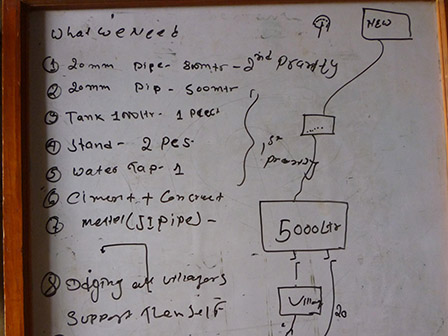 What we Need
① 20mm pipe - 800mtr - 2nd Prarity
② 20mm pip - 500mtr
③ Tank 1000ltr - 1 peec
④ Stand - 2 pes.
⑤ water Tap - 1
⑥ Ciment + Concreet
⑦ mettel (JI pipe) -
⑧ Digging all villagers
Support themself
1st
prarity
NEW
5000Ltr
Villag
20